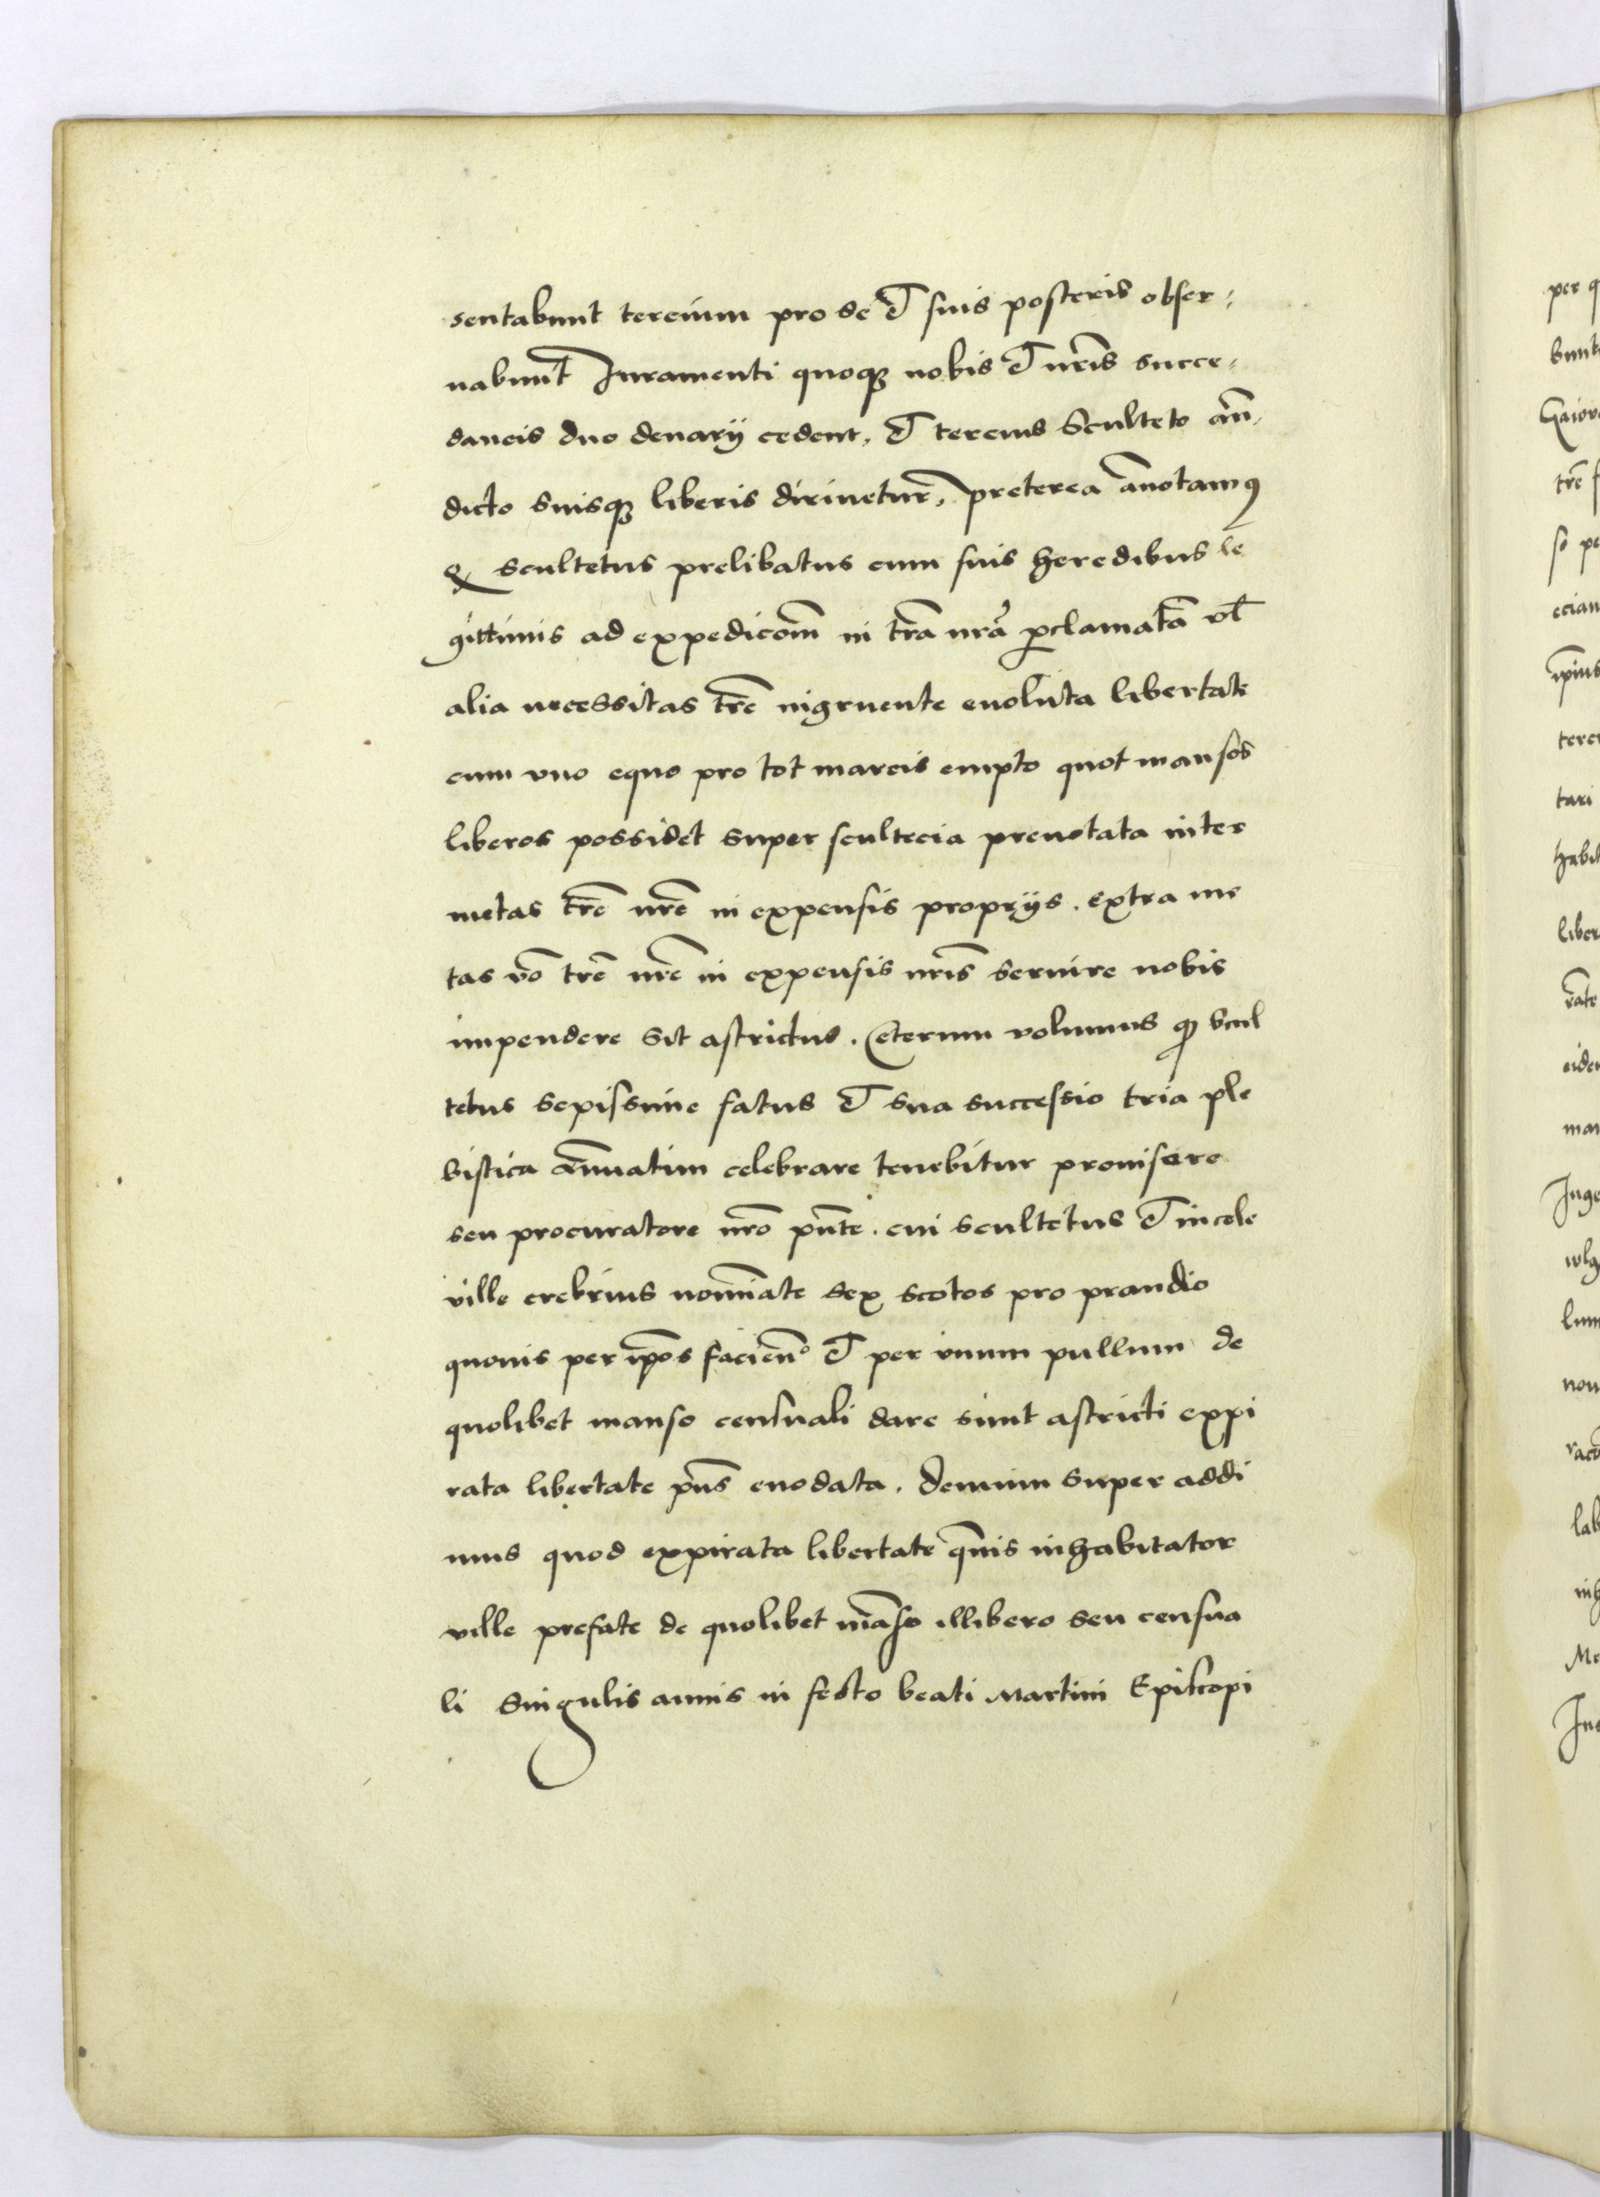 sentabunt tercium pro se & suis posteris obser-
uabunt Iuramenti quoqꝫ nobis & nr̄is succe-
daneis duo denarij cedent, & tercius Sculteto an̄-
dicto suisqꝫ liberis diriuetur, preterea ān̄otamꝰ
Q scultetus prelibatus cum suis heredibus le
gittimis ad expedicōm in tr̄a nr̄a ꝓclamatā vl̄
alia necessitas tr̄e ingruente euoluta libertate
cum vno equo pro tot marcis empto quot mansos
liberos possidet super scultecia prenotata inter
metas tr̄e nr̄e in expensis proprijs. extra me
tas v̄o tr̄e nr̄e in expensis nr̄is seruire nobis
impendere sit astrictus. Ceterum volumus ꝙ scul
tetus sepissime fatus & sua successio tria ple
bistica ān̄uatim celebrare tenebitur prouisore
seu procuratore nr̄o pn̄te. cui scultetus & incole
ville crebrius nomīate sex scotos pro prandio
quouis per ip̄os facien̄ & per vnum pullum de
quolibet manso censuali dare sunt astricti expi
rata libertate pn̄s enodata. Demum super addi
mus quod expirata libertate qūis inhabitator
ville prefate de quolibet māso illibero seu censua
li singulis annis in festo beati Martini Episcopi
per q
bunt
tr̄e
so pe
ecian
ip̄ius
terci
tari
habit
liber
eiden
man
lum
non
lab
inh